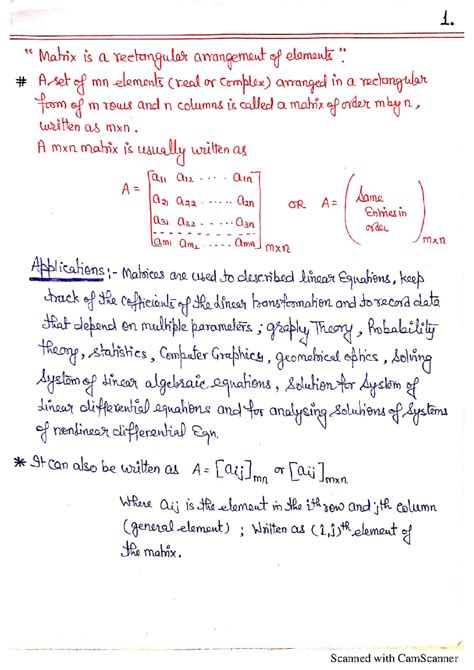 1.
"Matrix is a rectangular arrangement of elements".
# A set of mn elements (real or complex) arranged in a rectangular
form of m rows and n columns is called a matrix of order m by n,
written as m×n.
A m×n matrix is usually written as
A = [a11 a12 ..... a1n
a21 a22 ..... a2n
a31 a32 ...... a3n
am1 am2 ..... amn] m×n OR A = (Same Entries in order) m×n
Applications:- Matrices are used to described linear Equations, keep
track of the cofficients of the linear transformation and to record data
that depend on multiple parameters; graphy Theory, Probability
theory, statistics, Computer Graphics, geometrical optics, Solving
System of linear algebraic equations, Solution for System of
linear differential equations and for analysing solutions of Systems
of nonlinear differential Eqn.
* It can also be written as A = [aij]mn or [aij]m×n
Where aij is the element in the ith row and jth column
(general element) ; Written as (i,j)th element of
the matrix.
Scanned with CamScanner